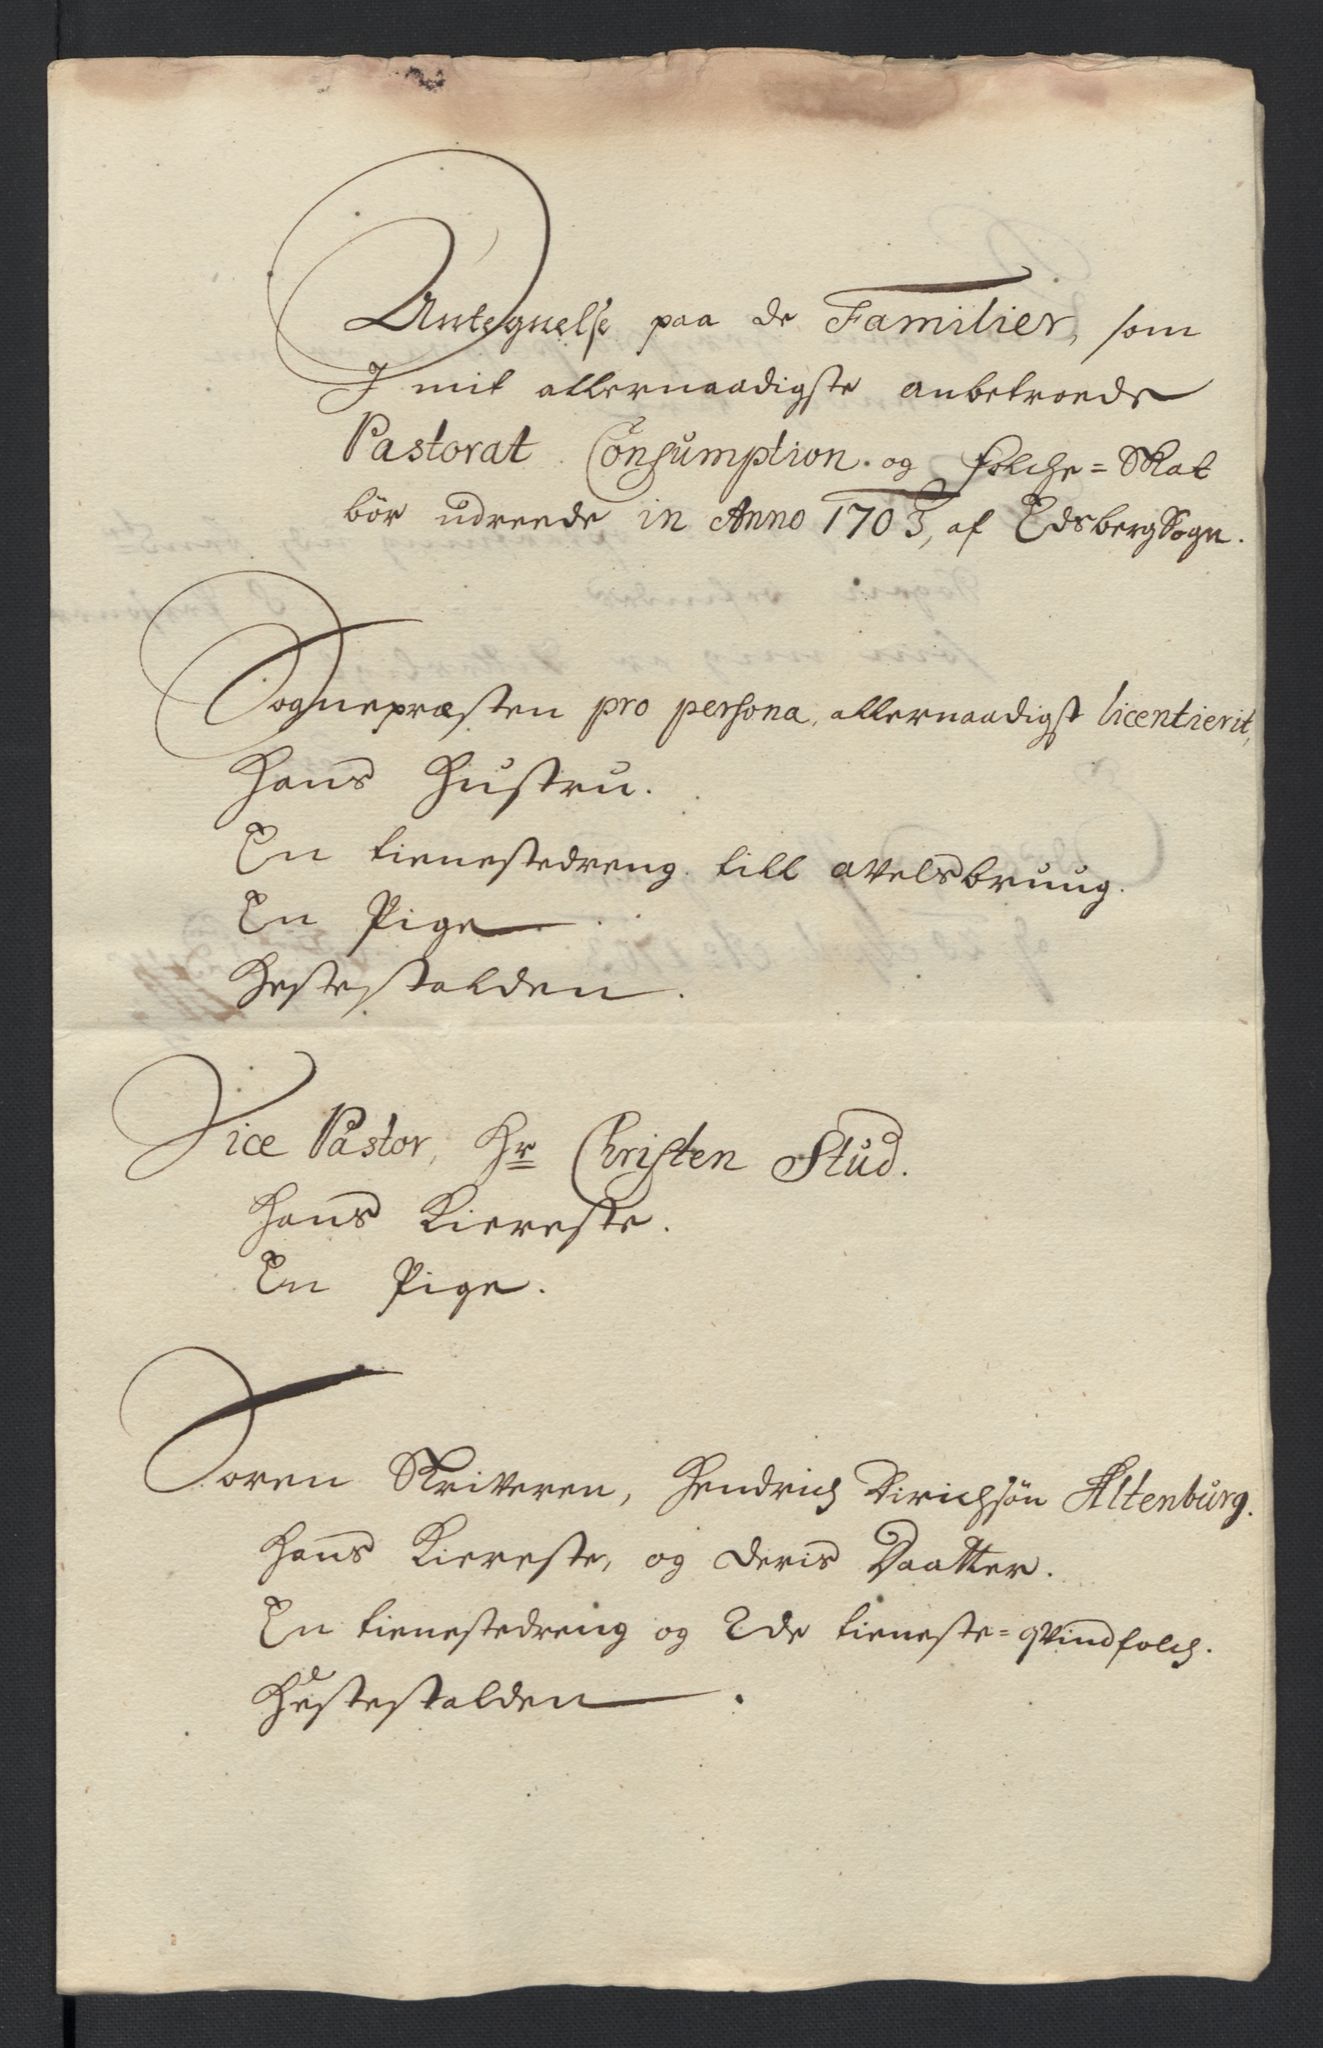 Antegnelse paa de Familier, som
I mit allernaadigste anbetroede
Pastorat Consumption og folche=Skat
bör udreede in Anno 1703, af Edsberg Sogn.
Sognepræsten pro persona, allernaadigst licentierit,
Hans Hustru.
En tienestedreng till avelsbruug.
En Pige
Hestestalden.
Vice Pastor, Hr Christen Stud.
Hans Kiereste.
En Pige.
Soren Skriveren, Hendrich Dirichsön Altenburg.
Hans Kiereste, og deris Daatter.
En tienestedreng og 2de tieneste=qvindfolch.
Hestestalden.